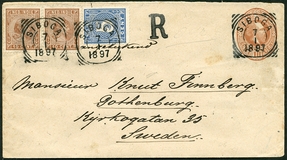 SIBOGA
7
1
1897
SIBOGA
7
1
1897
R
SIBOGA
7
1
1897
Aangeteekend
Monsieur Knut Finnberg.
Gothenburg.
Kyrkogatan 35
Sweden.